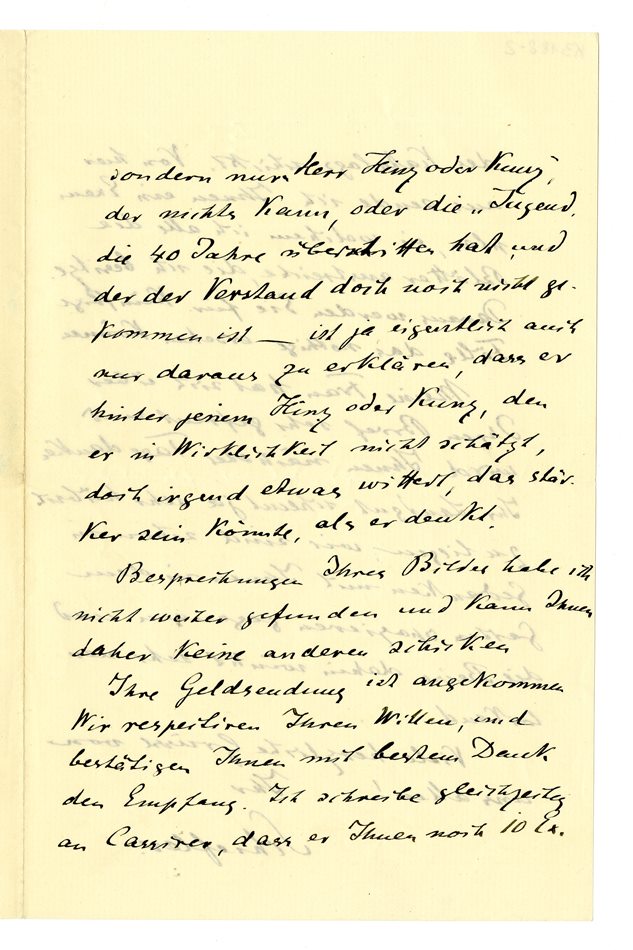 sondern nur Herr Hinz oder Kunz,
der nichts kann, oder die „Jugend,
die 40 Jahre überschritten hat und
der der Verstand doch noch nicht ge-
kommen ist — ist ja eigentlich auch
nur daraus zu erklären, dass er
hinter jenem Hinz oder Kunz, den
er in Wirklichkeit nicht schätzt,
doch irgend etwas wittert, das stär-
ker sein könnte, als er denkt.
Besprechungen Ihres Bildes habe ich
nicht weiter gefunden und kann Ihnen
daher keine anderen schicken
Ihre Geldsendung ist angekommen
Wir respectiren Ihren Willen, und
bestätigen Ihnen mit bestem Dank
den Empfang. Ich schreibe gleichzeitig
an Cassirer, dass er Ihnen noch 10 Ex.